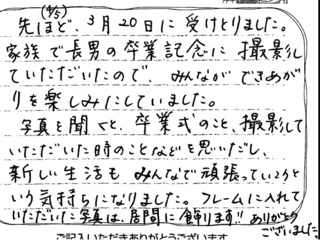 (4/5)
先ほど、3月20日に受けとりました。
家族で長男の卒業記念に撮影し
ていただいたので、みんなができあが
りを楽しみにしていました。
写真を開くと、卒業式のこと、撮影して
いただいた時のことなどを思いだし、
新しい生活もみんなで頑張っていこうと
いう気持ちになりました。フレームに入れて
いただいた写真は、居間に飾ります!! ありがとう
ございました。
ご記入いただきありがとうございます